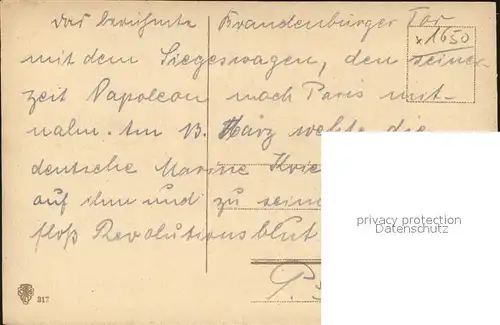 Das berühmte Brandenburger Tor
x1650
mit dem Siegeswagen, den seiner-
zeit Napoleon nach Paris mit-
nahm. Am 13. März wehte die
deutsche Marine Krie
auf ihm und zu seine
floß Revolutionsblut
privacy protection
Datenschutz
317